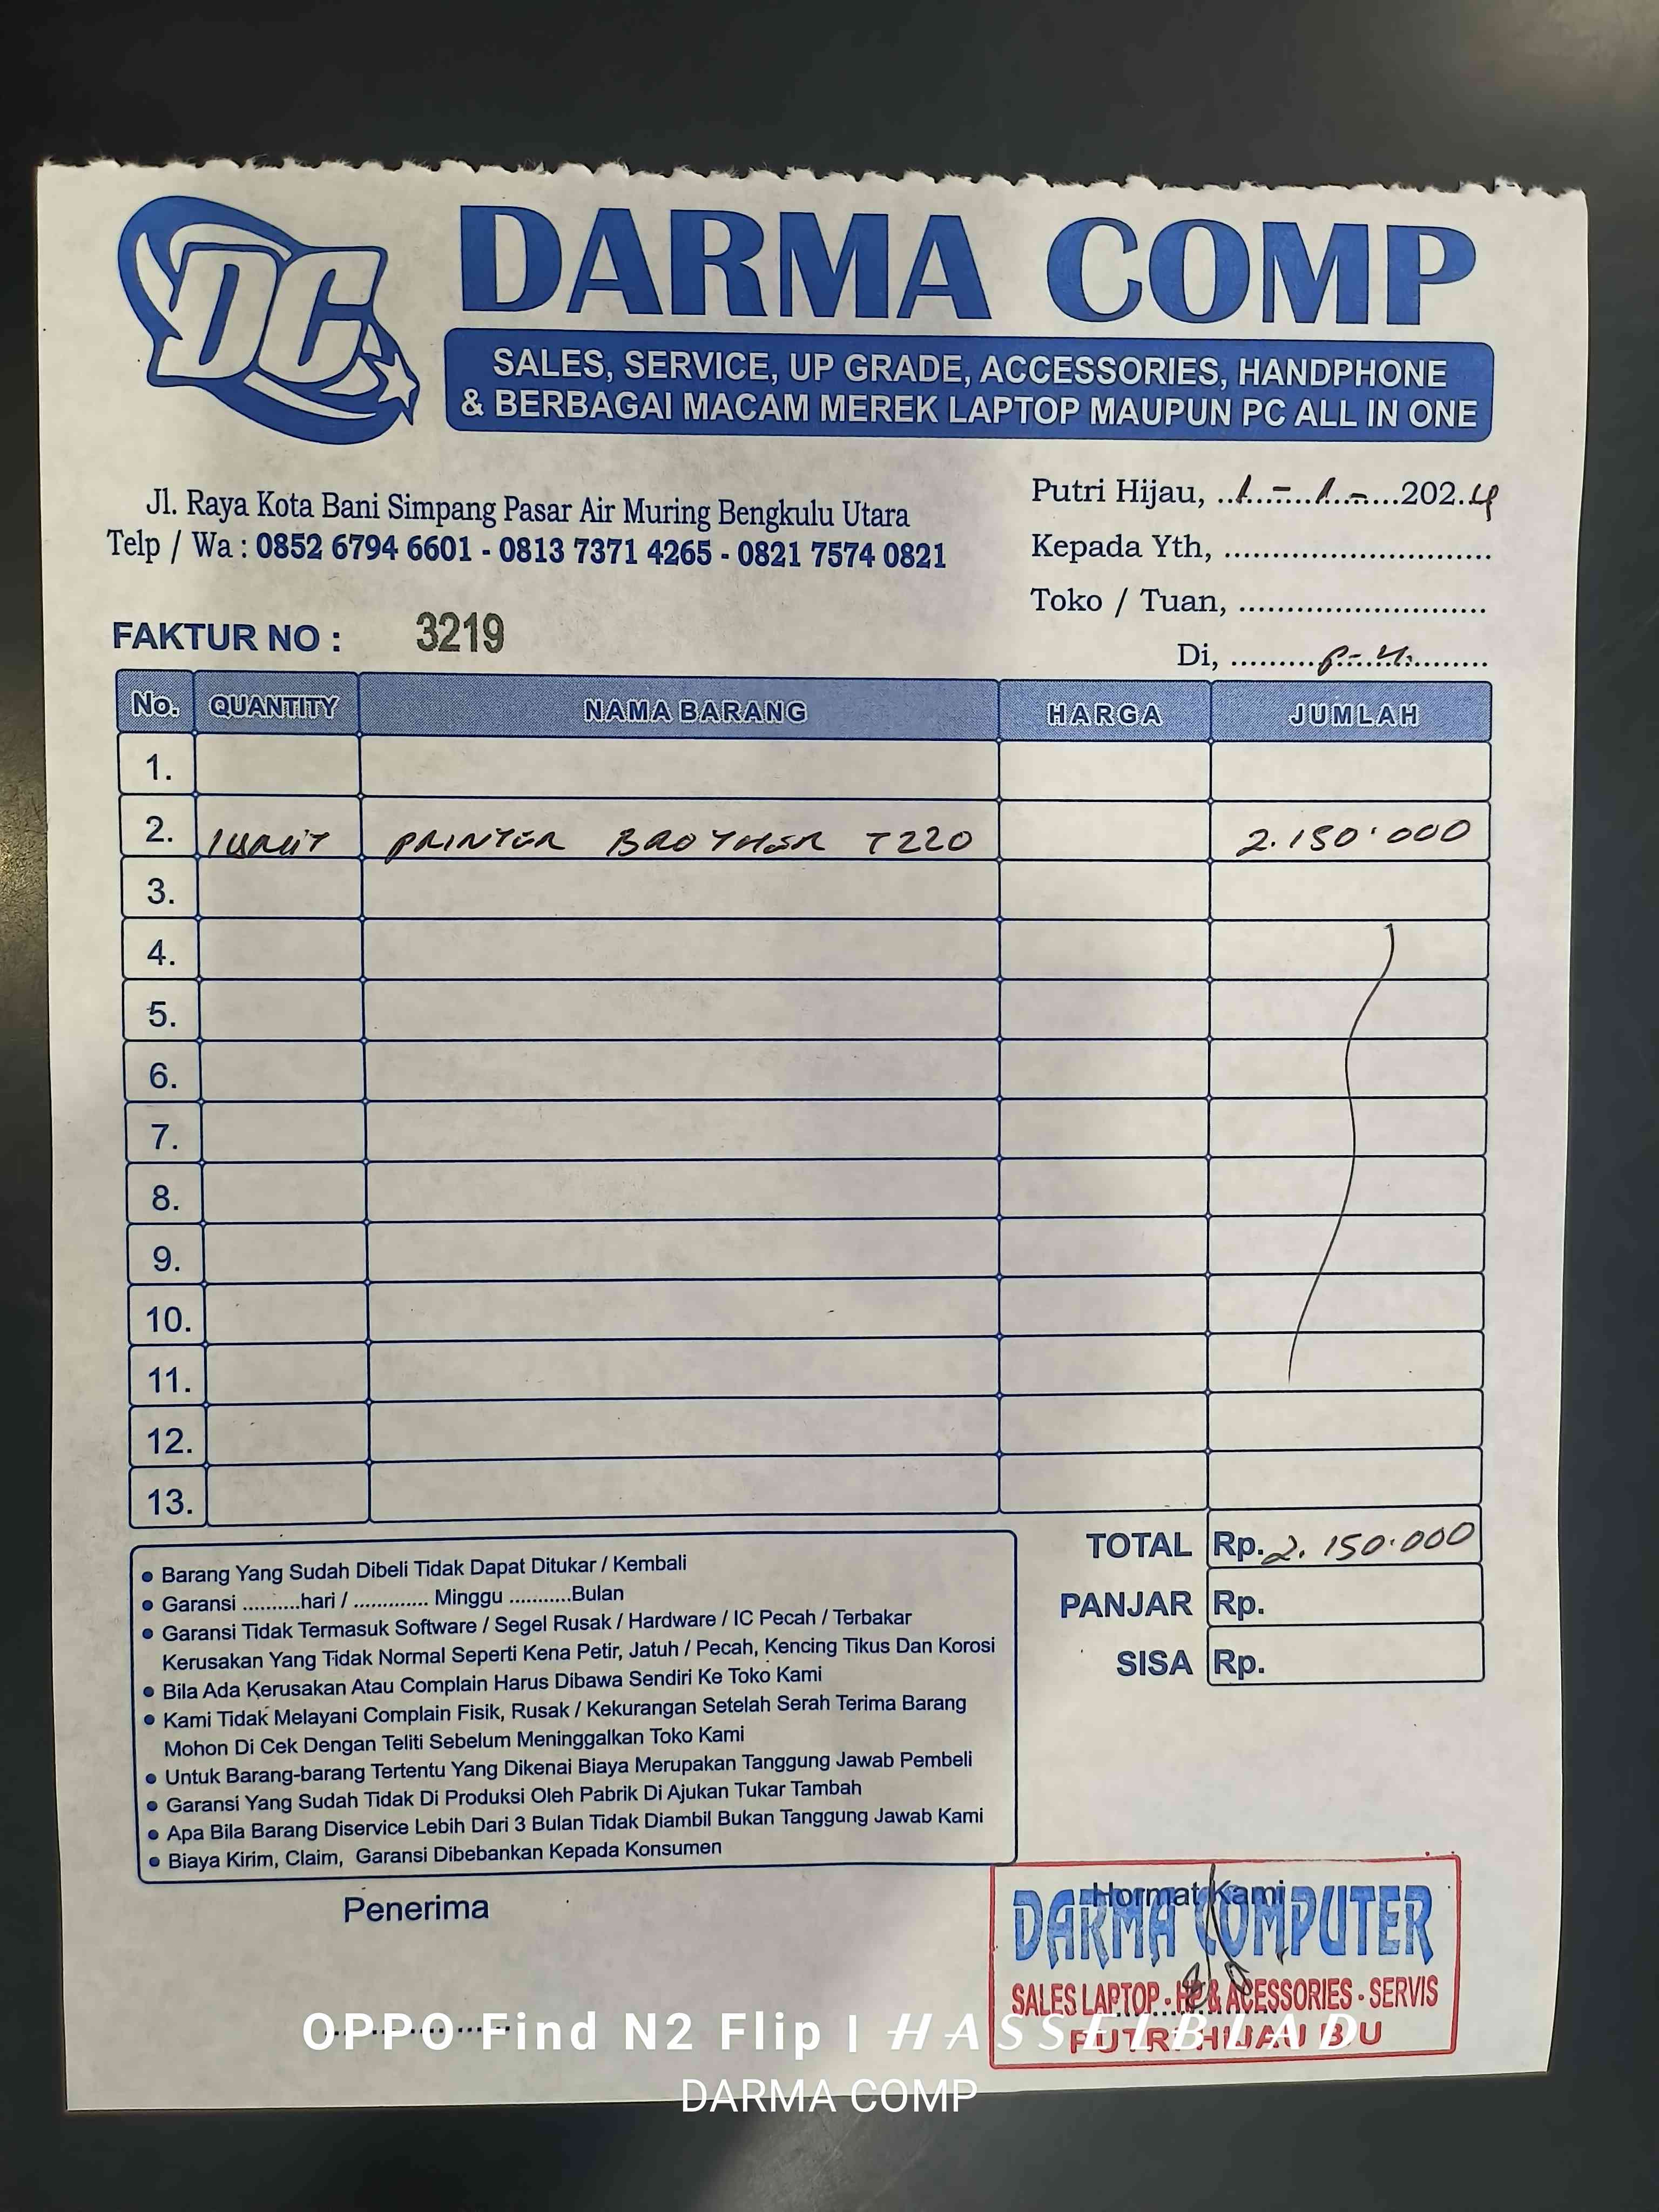 DC
DARMA COMP
SALES, SERVICE, UP GRADE, ACCESSORIES, HANDPHONE
& BERBAGAI MACAM MEREK LAPTOP MAUPUN PC ALL IN ONE
Jl. Raya Kota Bani Simpang Pasar Air Muring Bengkulu Utara
Telp / Wa : 0852 6794 6601 - 0813 7371 4265 - 0821 7574 0821
Putri Hijau, ..1.-..1.-....2024
Kepada Yth, ...........................
Toko / Tuan, .........................
Di, .........P-H...........
FAKTUR NO : 3219
No. QUANTITY NAMA BARANG HARGA JUMLAH
1.
2. 1 UNIT PRINTER BROTHER T220 2.150.000
3.
4.
5.
6.
7.
8.
9.
10.
11.
12.
13.
TOTAL Rp. 2.150.000
PANJAR Rp.
SISA Rp.
• Barang Yang Sudah Dibeli Tidak Dapat Ditukar / Kembali
• Garansi ..........hari / ............. Minggu ...........Bulan
• Garansi Tidak Termasuk Software / Segel Rusak / Hardware / IC Pecah / Terbakar
Kerusakan Yang Tidak Normal Seperti Kena Petir, Jatuh / Pecah, Kencing Tikus Dan Korosi
• Bila Ada Kerusakan Atau Complain Harus Dibawa Sendiri Ke Toko Kami
• Kami Tidak Melayani Complain Fisik, Rusak / Kekurangan Setelah Serah Terima Barang
Mohon Di Cek Dengan Teliti Sebelum Meninggalkan Toko Kami
• Untuk Barang-barang Tertentu Yang Dikenai Biaya Merupakan Tanggung Jawab Pembeli
• Garansi Yang Sudah Tidak Di Produksi Oleh Pabrik Di Ajukan Tukar Tambah
• Apa Bila Barang Diservice Lebih Dari 3 Bulan Tidak Diambil Bukan Tanggung Jawab Kami
• Biaya Kirim, Claim, Garansi Dibebankan Kepada Konsumen
Penerima
Hormat Kami
DARMA COMPUTER
SALES LAPTOP - HP & ACESSORIES - SERVIS
PUTRI HIJAU B U
OPPO Find N2 Flip | HASSELBLAD
DARMA COMP